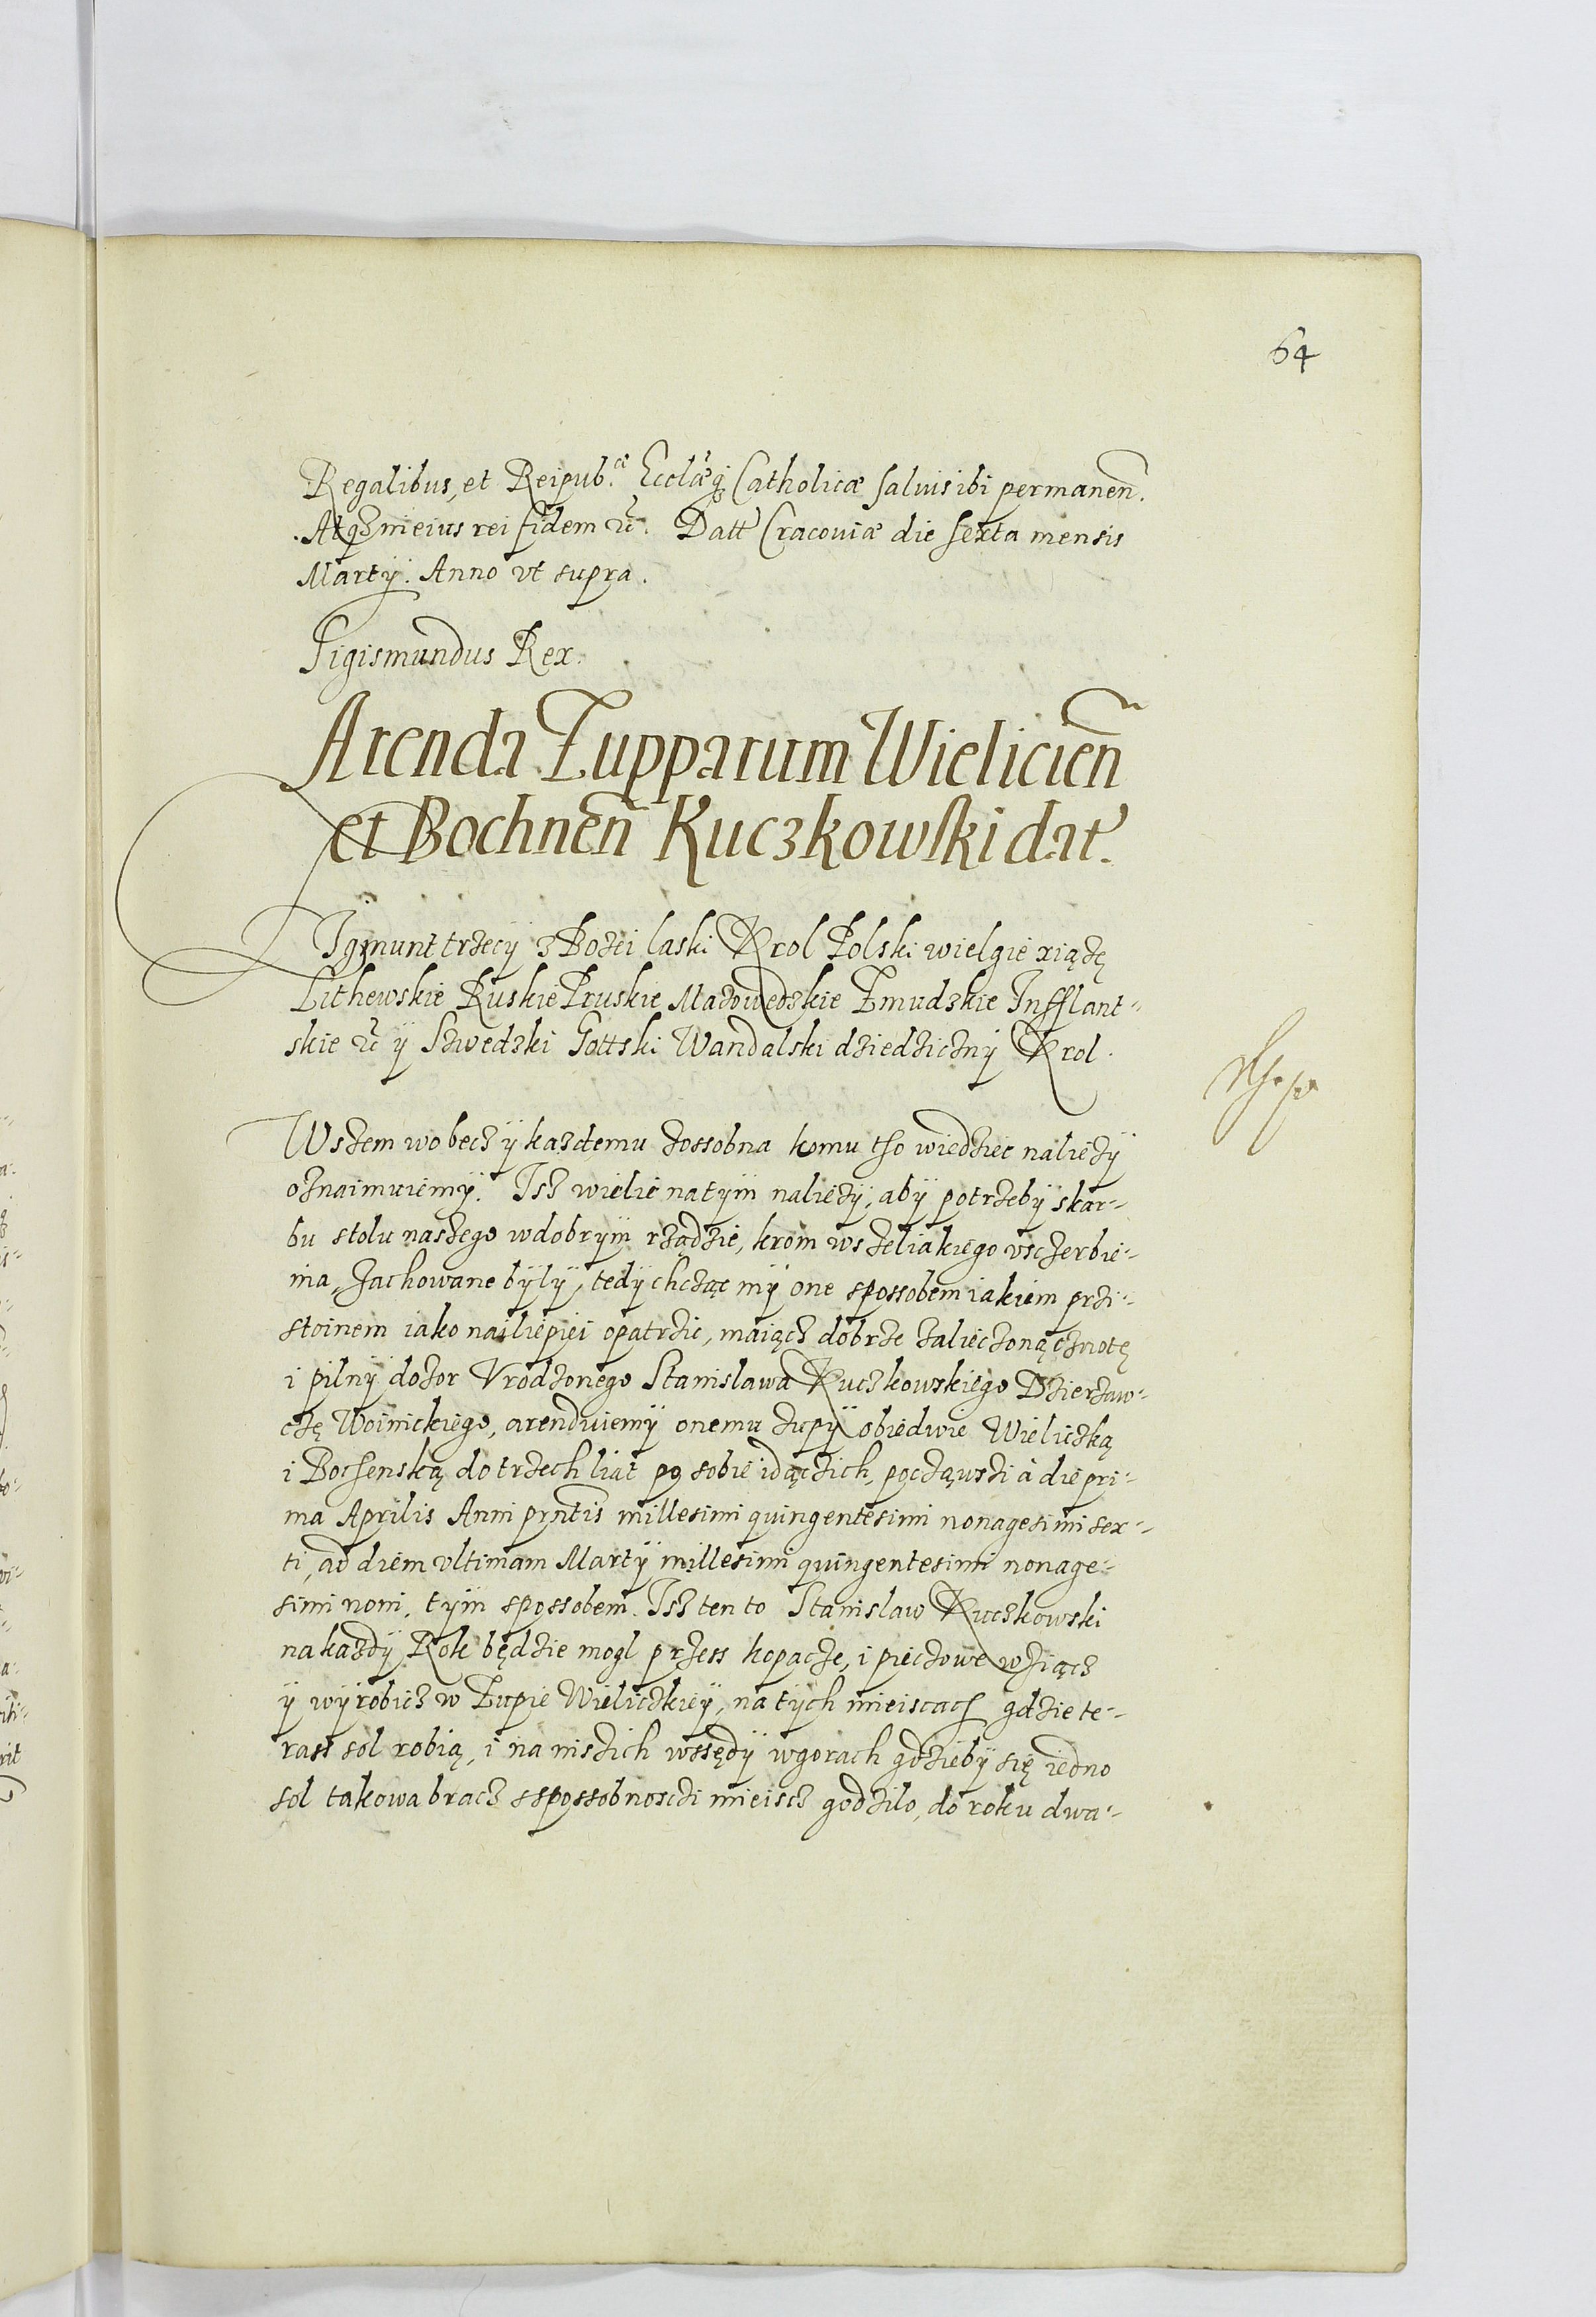 64
Regalibus, et Reipub.cæ Ecclæq; Catholicæ saluis ibi permanen̄.
Atq; in eius rei fidem &c̃. Datt Cracouiæ die sexta mensis
Martÿ. Anno vt supra.
Sigismundus Rex.
Arenda Zupparum Wielicień
et Bochneñ Kuczkowski dat.
Zÿgmunt trzecÿ z Bozei laski Krol Polski wielgie xiązę
Lithewskie Ruskie Pruskie Mazowedzkie Zmudzkie Infflant-
skie &c̃ ÿ Szwedzki Gottski Wandalski dziedzicznÿ Krol.
Wszem wobecz ÿ kazdemu zossobna komu tho wiedziec naliezÿ
oznaimuiemÿ. Isz wielie natÿm naliezÿ, abÿ potrzebÿ skar-
bu stolu naszego wdobrÿm rządzie, krom wszeliakiego vsczerbie-
nia, zachowane bÿlÿ, tedÿ chcząc mÿ one spossobem iakiem przi-
stoinem iako nailiepiei opatrzic, maiącz dobrze zalieczoną cznotę
i pilnÿ dozor Vrodzonego Stanislawa Kuczkowskiego Dzierzaw-
czę Woinickiego, arenduiemÿ onemu zupÿ obiedwie Wieliczką
i Bochenską do trzech liat po sobie idączich, począwszi à die pri-
ma Aprilis Anni prntis millesimi quingentesimi nonagesimi sex-
ti, ad diem vltimam Martÿ millesimi quingentesimi nonage-
simi noni, tÿm spossobem. Isz ten to Stanislaw Kuczkowski
na kazdÿ Rok będzie mogl przess kopacze, i pieczowe wziącz
ÿ wÿrobicz w Zupie Wieliczkieÿ, na tÿch mieiscach gdzie te-
rass sol robią, i na niszich wssędÿ wgorach gdziebÿ się iedno
sol takowa bracz sspossobnosczi mieiscz godzilo, do roku dwa-